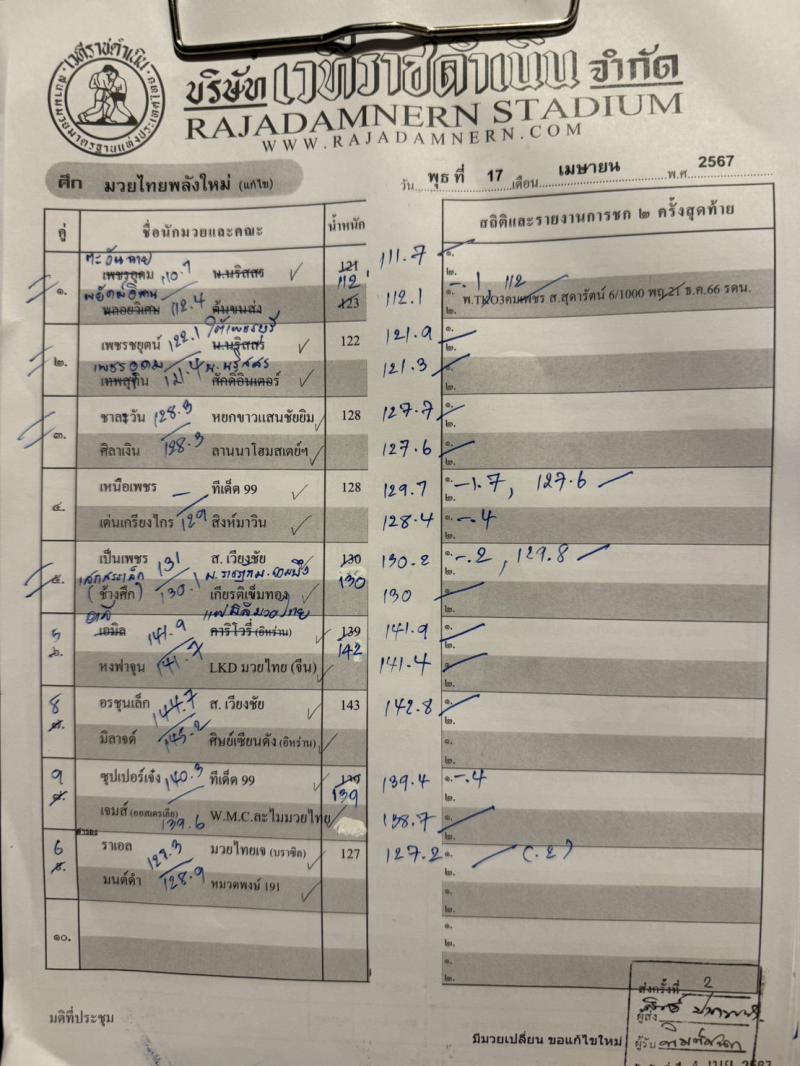 เวทีราชดำเนิน
บริษัท เวทีราชดำเนิน จำกัด
RAJADAMNERN STADIUM
WWW.RAJADAMNERN.COM
ศึก มวยไทยพลังใหม่ (แก้ไข)
วัน พุธ ที่ 17 เดือน เมษายน พ.ศ. 2567
คู่ ชื่อนักมวยและคณะ น้ำหนัก สถิติและรายงานการชก ๒ ครั้งสุดท้าย
ตะวันฉาย
๑. เพชรอุดม 110.7 น.นริสสร 121 112 111.7 ๑.
๒. -.1, 112
พลอยวิเศษ 112.4 ต้นขนส่ง 123 112.1 ๑. พ.TKO3คมเพชร ส.สุดารัตน์ 6/1000 พฤ.21 ธ.ค.66 รดน.
๒.
๒. เพชรชยุตน์ 122.1 ใต้เพชรบุรี น.นริสสร 122 121.9 ๑.
๒.
เพชรอุดม น.นริสสร
เทพสุทิน ศักดิ์อินเตอร์ 121.3 ๑.
๒.
๓. ชาละวัน 128.3 หยกขาวแสนชัยยิม 128 127.7 ๑.
๒.
ศิลาเงิน 128.3 ลานนาโฮมสเตย์ฯ 127.6 ๑.
๒.
๔. เหนือเพชร - ทีเด็ด 99 128 129.7 ๑. -1.7, 127.6
๒.
เด่นเกรียงไกร 129 สิงห์มาวิน 128.4 ๑. -.4
๒.
๕. เป็นเพชร 131 ส. เวียงชัย 130 130 130.2 ๑. -.2, 129.8
๒.
(ช้างศึก) 130.1 เกียรติเข็มทอง 130 ๑.
๒.
๖. เอมิล 141.9 คาริโวรี่ (อิหร่าน) 139 142 141.9 ๑.
๒.
หงฟาจุน 141.7 LKD มวยไทย (จีน) 141.4 ๑.
๒.
8 อรชุนเล็ก 144.7 ส. เวียงชัย 143 142.8 ๑.
๒.
มิลาจด์ 145.2 ศิษย์เซียนดัง (อิหร่าน) ๑.
๒.
9 ซุปเปอร์เจ๋ง 140.3 ทีเด็ด 99 139 139.4 ๑. -.4
๒.
เจมส์ (ออสเตรเลีย) 139.6 W.M.C.ละไมมวยไทย 138.7 ๑.
๒.
6 ราเอล 127.3 มวยไทยเจ (บราซิล) 127 127.2 ๑. (.2)
๒.
มนต์ดำ 128.9 หมวดพงษ์ 191 ๑.
๒.
๑๐. ๑.
๒.
๑.
๒.
มติที่ประชุม
มีมวยเปลี่ยน ขอแก้ไขใหม่
ส่งครั้งที่ 2
ผู้ส่ง
ผู้รับ